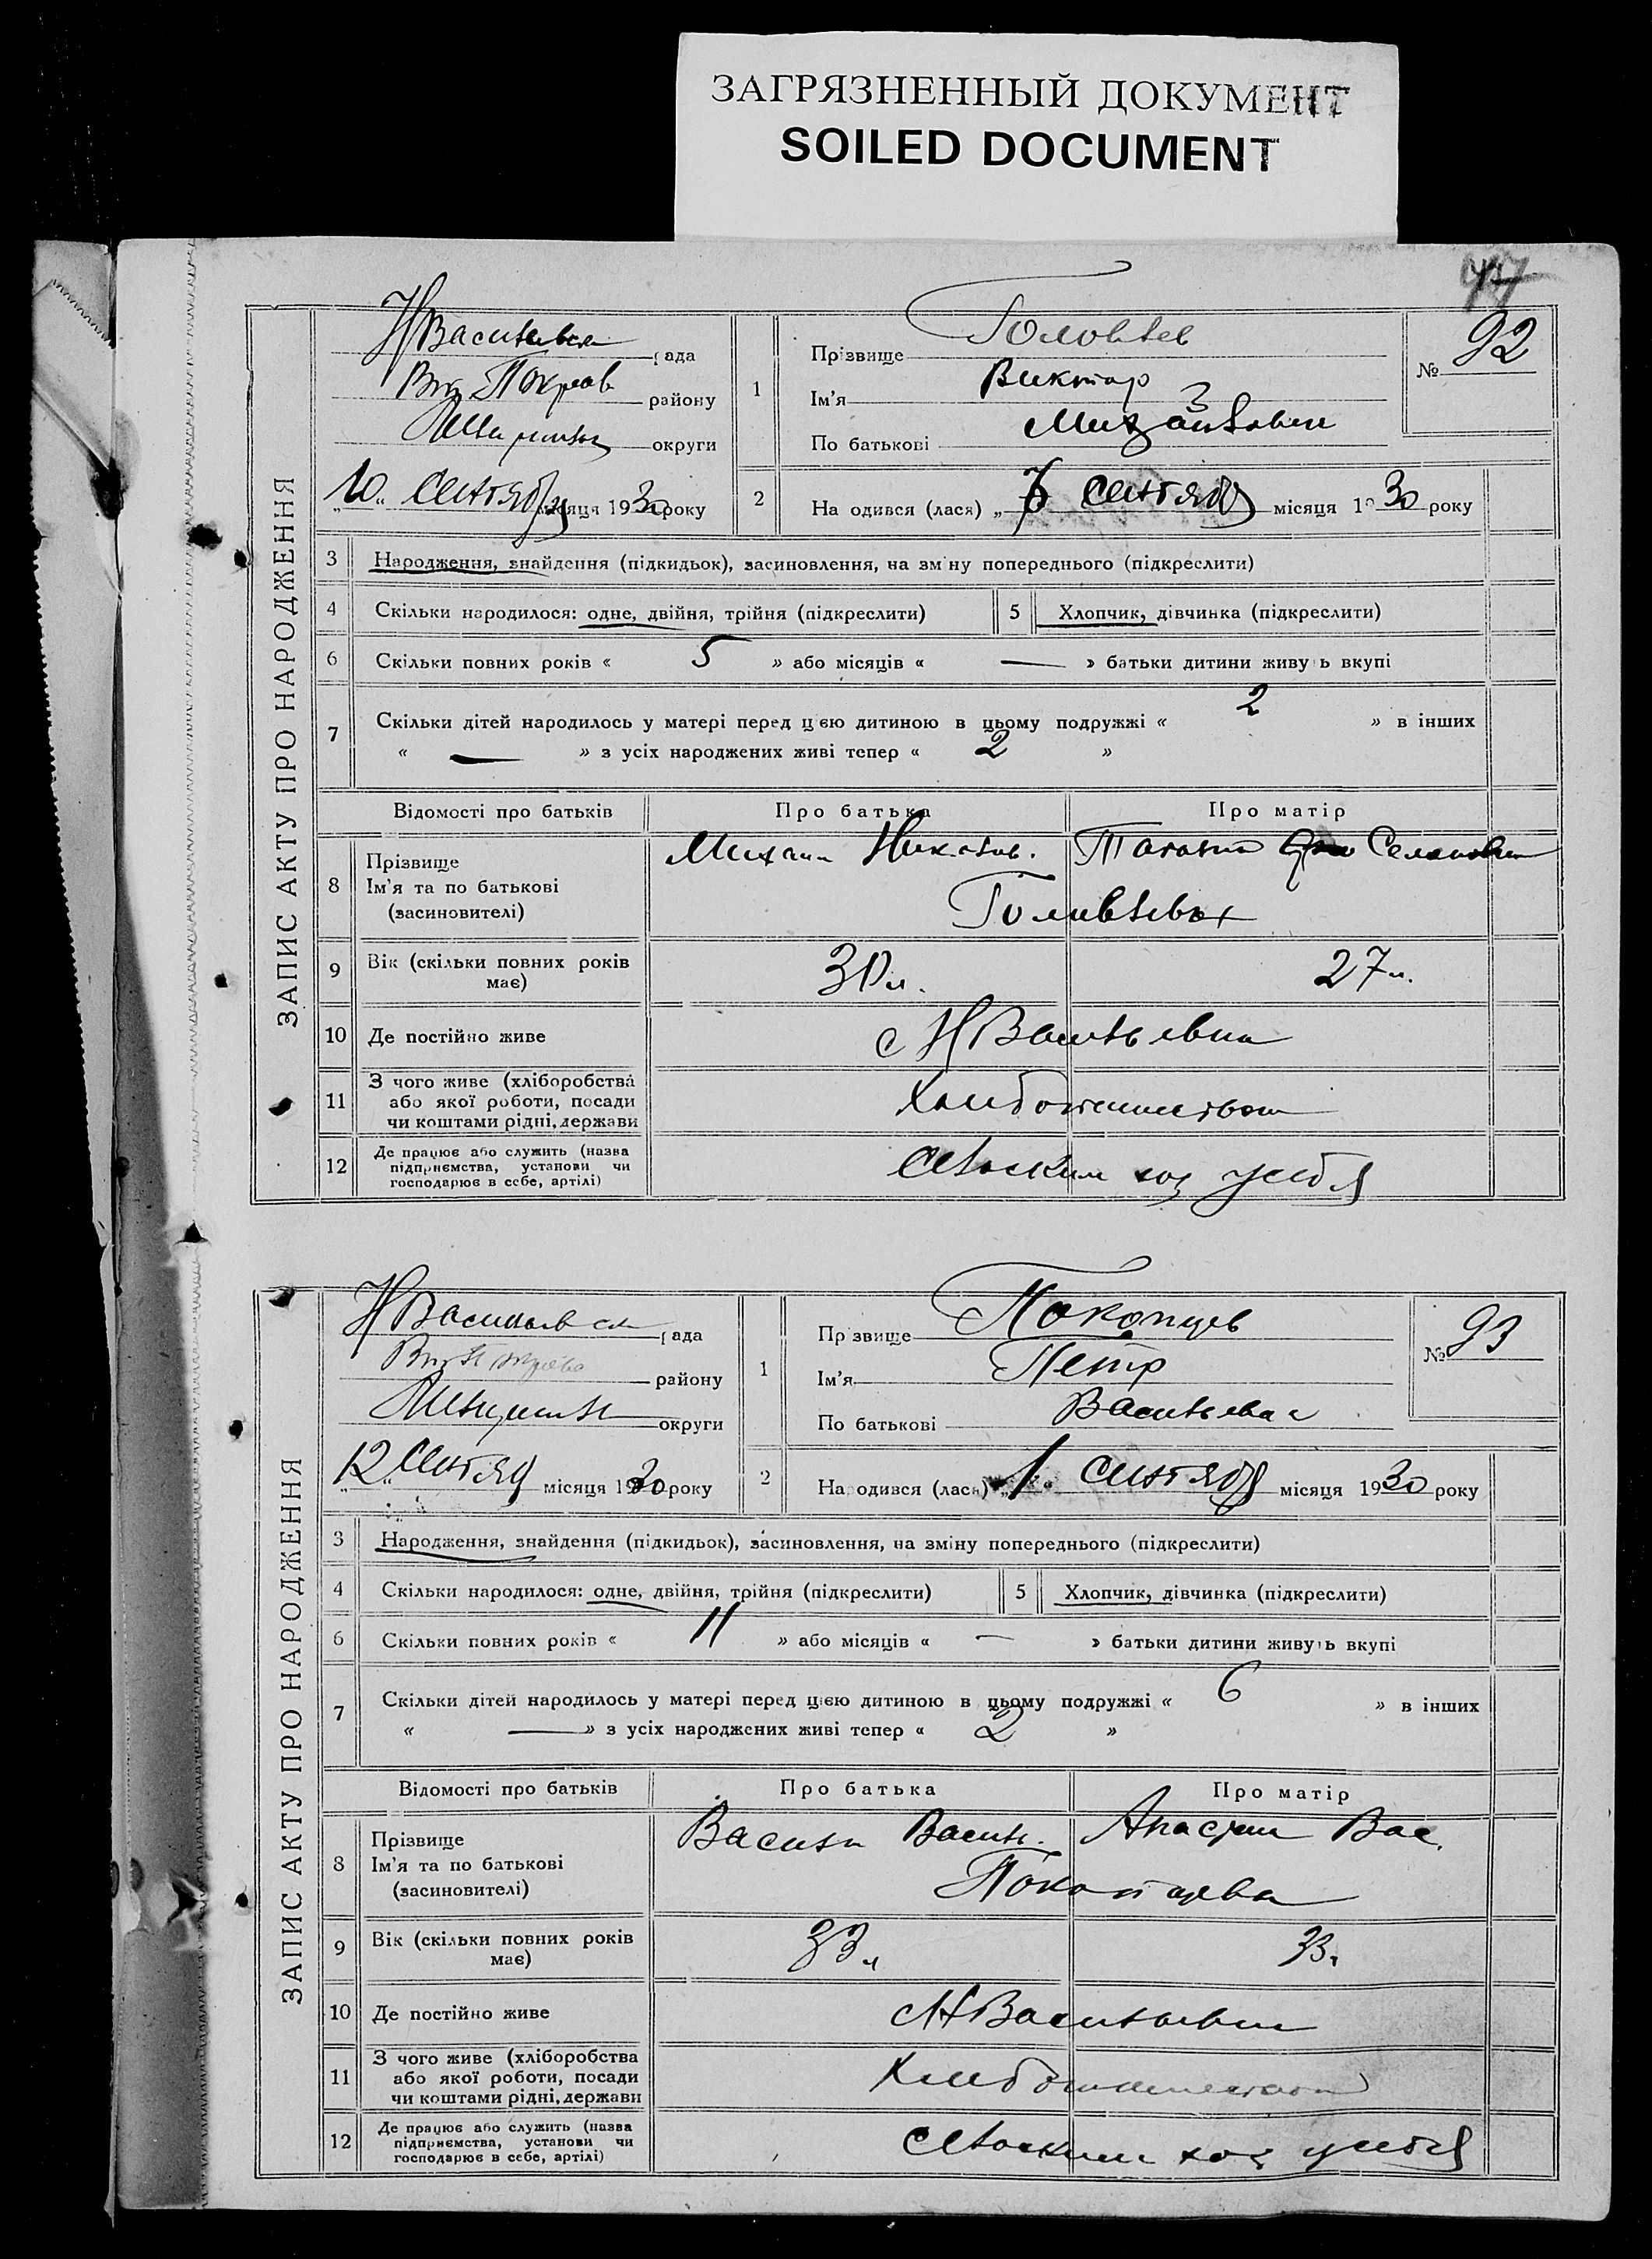 ЗАГРЯЗНЕННЫЙ ДОКУМЕНТ
SOILED DOCUMENT
ЗАПИС АКТУ ПРО НАРОДЖЕННЯ
рада
району
округи
"10" Сентября місяця 1930 року
1
Прізвище
Ім'я Виктор
По батькові
№ 92
2
Народився (лася) „ Сентября місяця 1930 року
3 Народження, знайдення (підкидьок), засиновлення, на зміну попереднього (підкреслити)
4 Скільки народилося: одне, двійня, трійня (підкреслити)
5 Хлопчик, дівчинка (підкреслити)
6 Скільки повних років « 5 » або місяців « — » батьки дитини живуть вкупі
7 Скільки дітей народилось у матері перед цією дитиною в цьому подружжі « 2 » в інших
« — » з усіх народжених живі тепер « 2 »
Відомості про батьків Про батька Про матір
8 Прізвище
Ім'я та по батькові
(засиновителі)
Михаил
9 Вік (скільки повних років
має)
30 л. 27 л.
10 Де постійно живе
с Н Васильевка
11 З чого живе (хліборобства
або якої роботи, посади
чи коштами рідні, держави
12 Де працює або служить (назва
підприємства, установи чи
господарює в себе, артілі)
хоз у себя
ЗАПИС АКТУ ПРО НАРОДЖЕННЯ
рада
району
округи
"12" Сентяб місяця 1930 року
1
Прізвище Покопцев
Ім'я Петр
По батькові
№ 93
2
Народився (лася) „1" Сентября місяця 1930 року
3 Народження, знайдення (підкидьок), засиновлення, на зміну попереднього (підкреслити)
4 Скільки народилося: одне, двійня, трійня (підкреслити)
5 Хлопчик, дівчинка (підкреслити)
6 Скільки повних років « 11 » або місяців « — » батьки дитини живуть вкупі
7 Скільки дітей народилось у матері перед цією дитиною в цьому подружжі « 6 » в інших
« — » з усіх народжених живі тепер « 2 »
Відомості про батьків Про батька Про матір
8 Прізвище
Ім'я та по батькові
(засиновителі)
Васили Васил. Анастаси Вас.
Покопцева
9 Вік (скільки повних років
має)
33 л 33.
10 Де постійно живе
с Н Васильевка
11 З чого живе (хліборобства
або якої роботи, посади
чи коштами рідні, держави
12 Де працює або служить (назва
підприємства, установи чи
господарює в себе, артілі)
хоз у себя